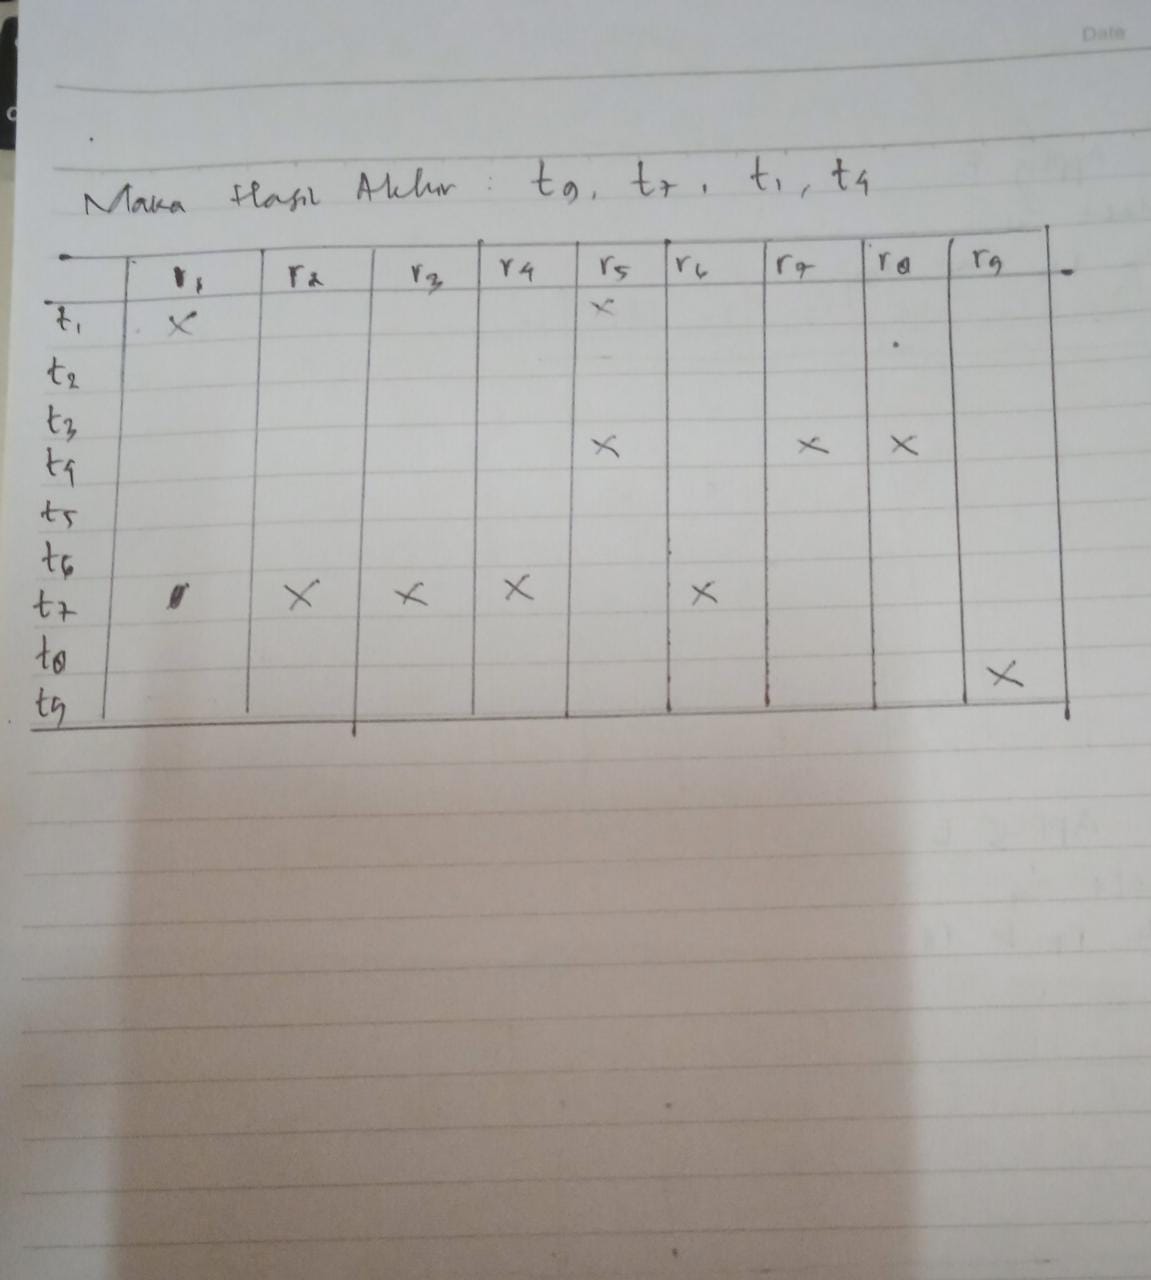 Date
Maka Hasil Akhir : t9, t7, t1, t4
r1 r2 r3 r4 r5 r6 r7 r8 r9
t1 x x
t2
t3
t4 x x x
t5
t6
t7 x x x x
t8
t9 x